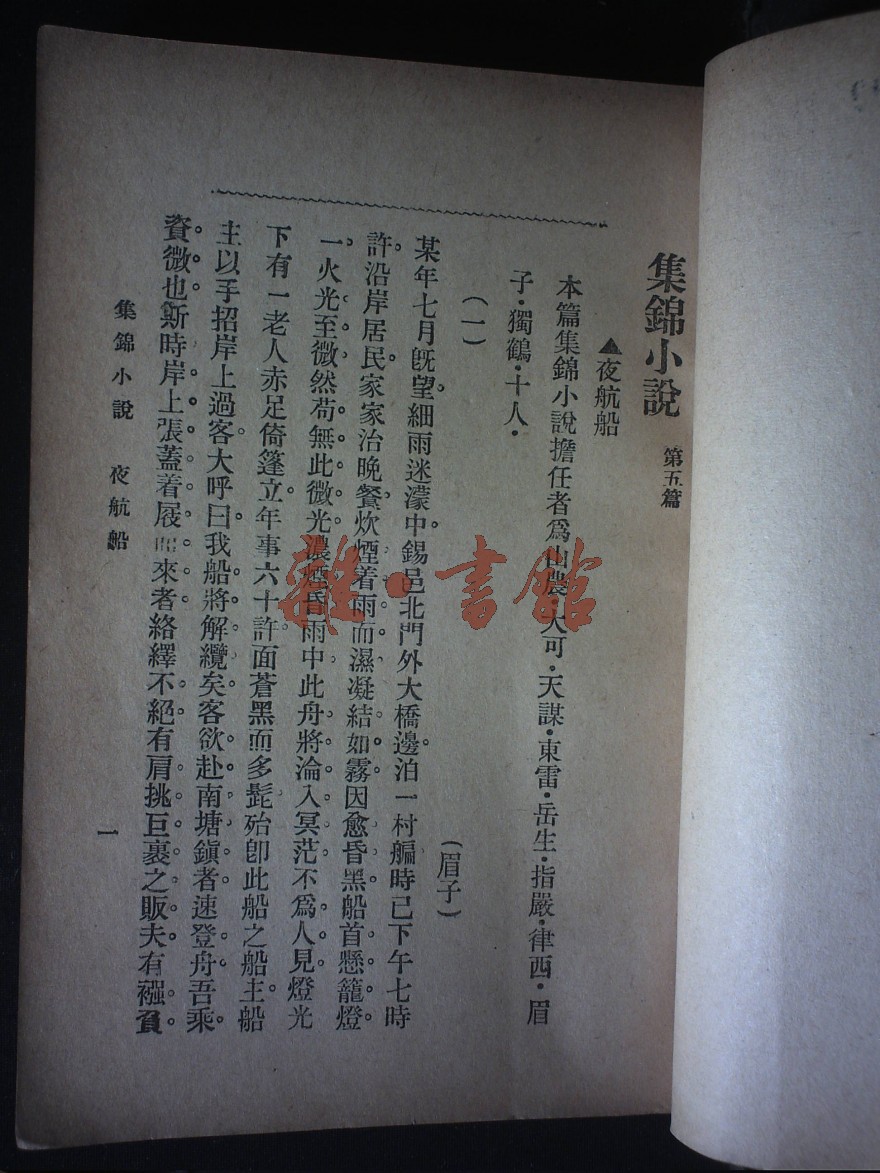 集錦小說 第五篇
▲夜航船
本篇集錦小說擔任者爲山農·大可·天謀·東雷·岳生·指嚴·律西·眉
子·獨鶴·十人·
(一) (眉子)
某年七月旣望。細雨迷濛中。錫邑北門外大橋邊。泊一村艑。時已下午七時
許。沿岸居民家家治晚餐。炊煙着雨而濕。凝結如霧。因愈昏黑。船首懸籠燈。
一火光至微。然苟無此微光。濃煙昏雨中。此舟將淪入冥茫。不爲人見。燈光
下有一老人。赤足倚篷立。年事六十許。面蒼黑而多髭。殆卽此船之船主。船
主以手招岸上過客。大呼曰。我船將解纜矣。客欲赴南塘鎭者。速登舟。吾乘
資微也。斯時岸上張蓋着屐來者。絡繹不絕。有肩挑巨裹之販夫。有襁負。
集錦小說 夜航船
一
雜·書館